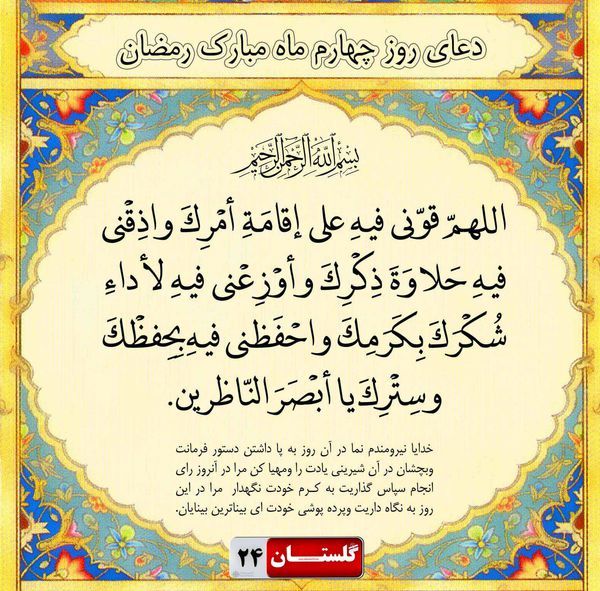 دعای روز چهارم ماه مبارک رمضان
بسم الله الرحمن الرحیم
اللهمّ قوّنی فیهِ علی إقامَةِ أمْرِكَ واذِقْنی
فیهِ حَلاوَةَ ذِكْرِكَ وأوْزِعْنی فیهِ لأداءِ
شُكْرَكَ بِكَرَمِكَ واحْفَظنی فیهِ بِحِفظْكَ
وسِتْرِكَ یا أبْصَرَ النّاظرین.
خدایا نیرومندم نما در آن روز به پا داشتن دستور فرمانت
وبچشان در آن شیرینی یادت را ومهیا کن مرا در آنروز رای
انجام سپاس گذاریت به کـرم خودت نگهدار مرا در این
روز به نگاه داریت وپرده پوشی خودت ای بیناترین بینایان.
گلستــان ۲۴